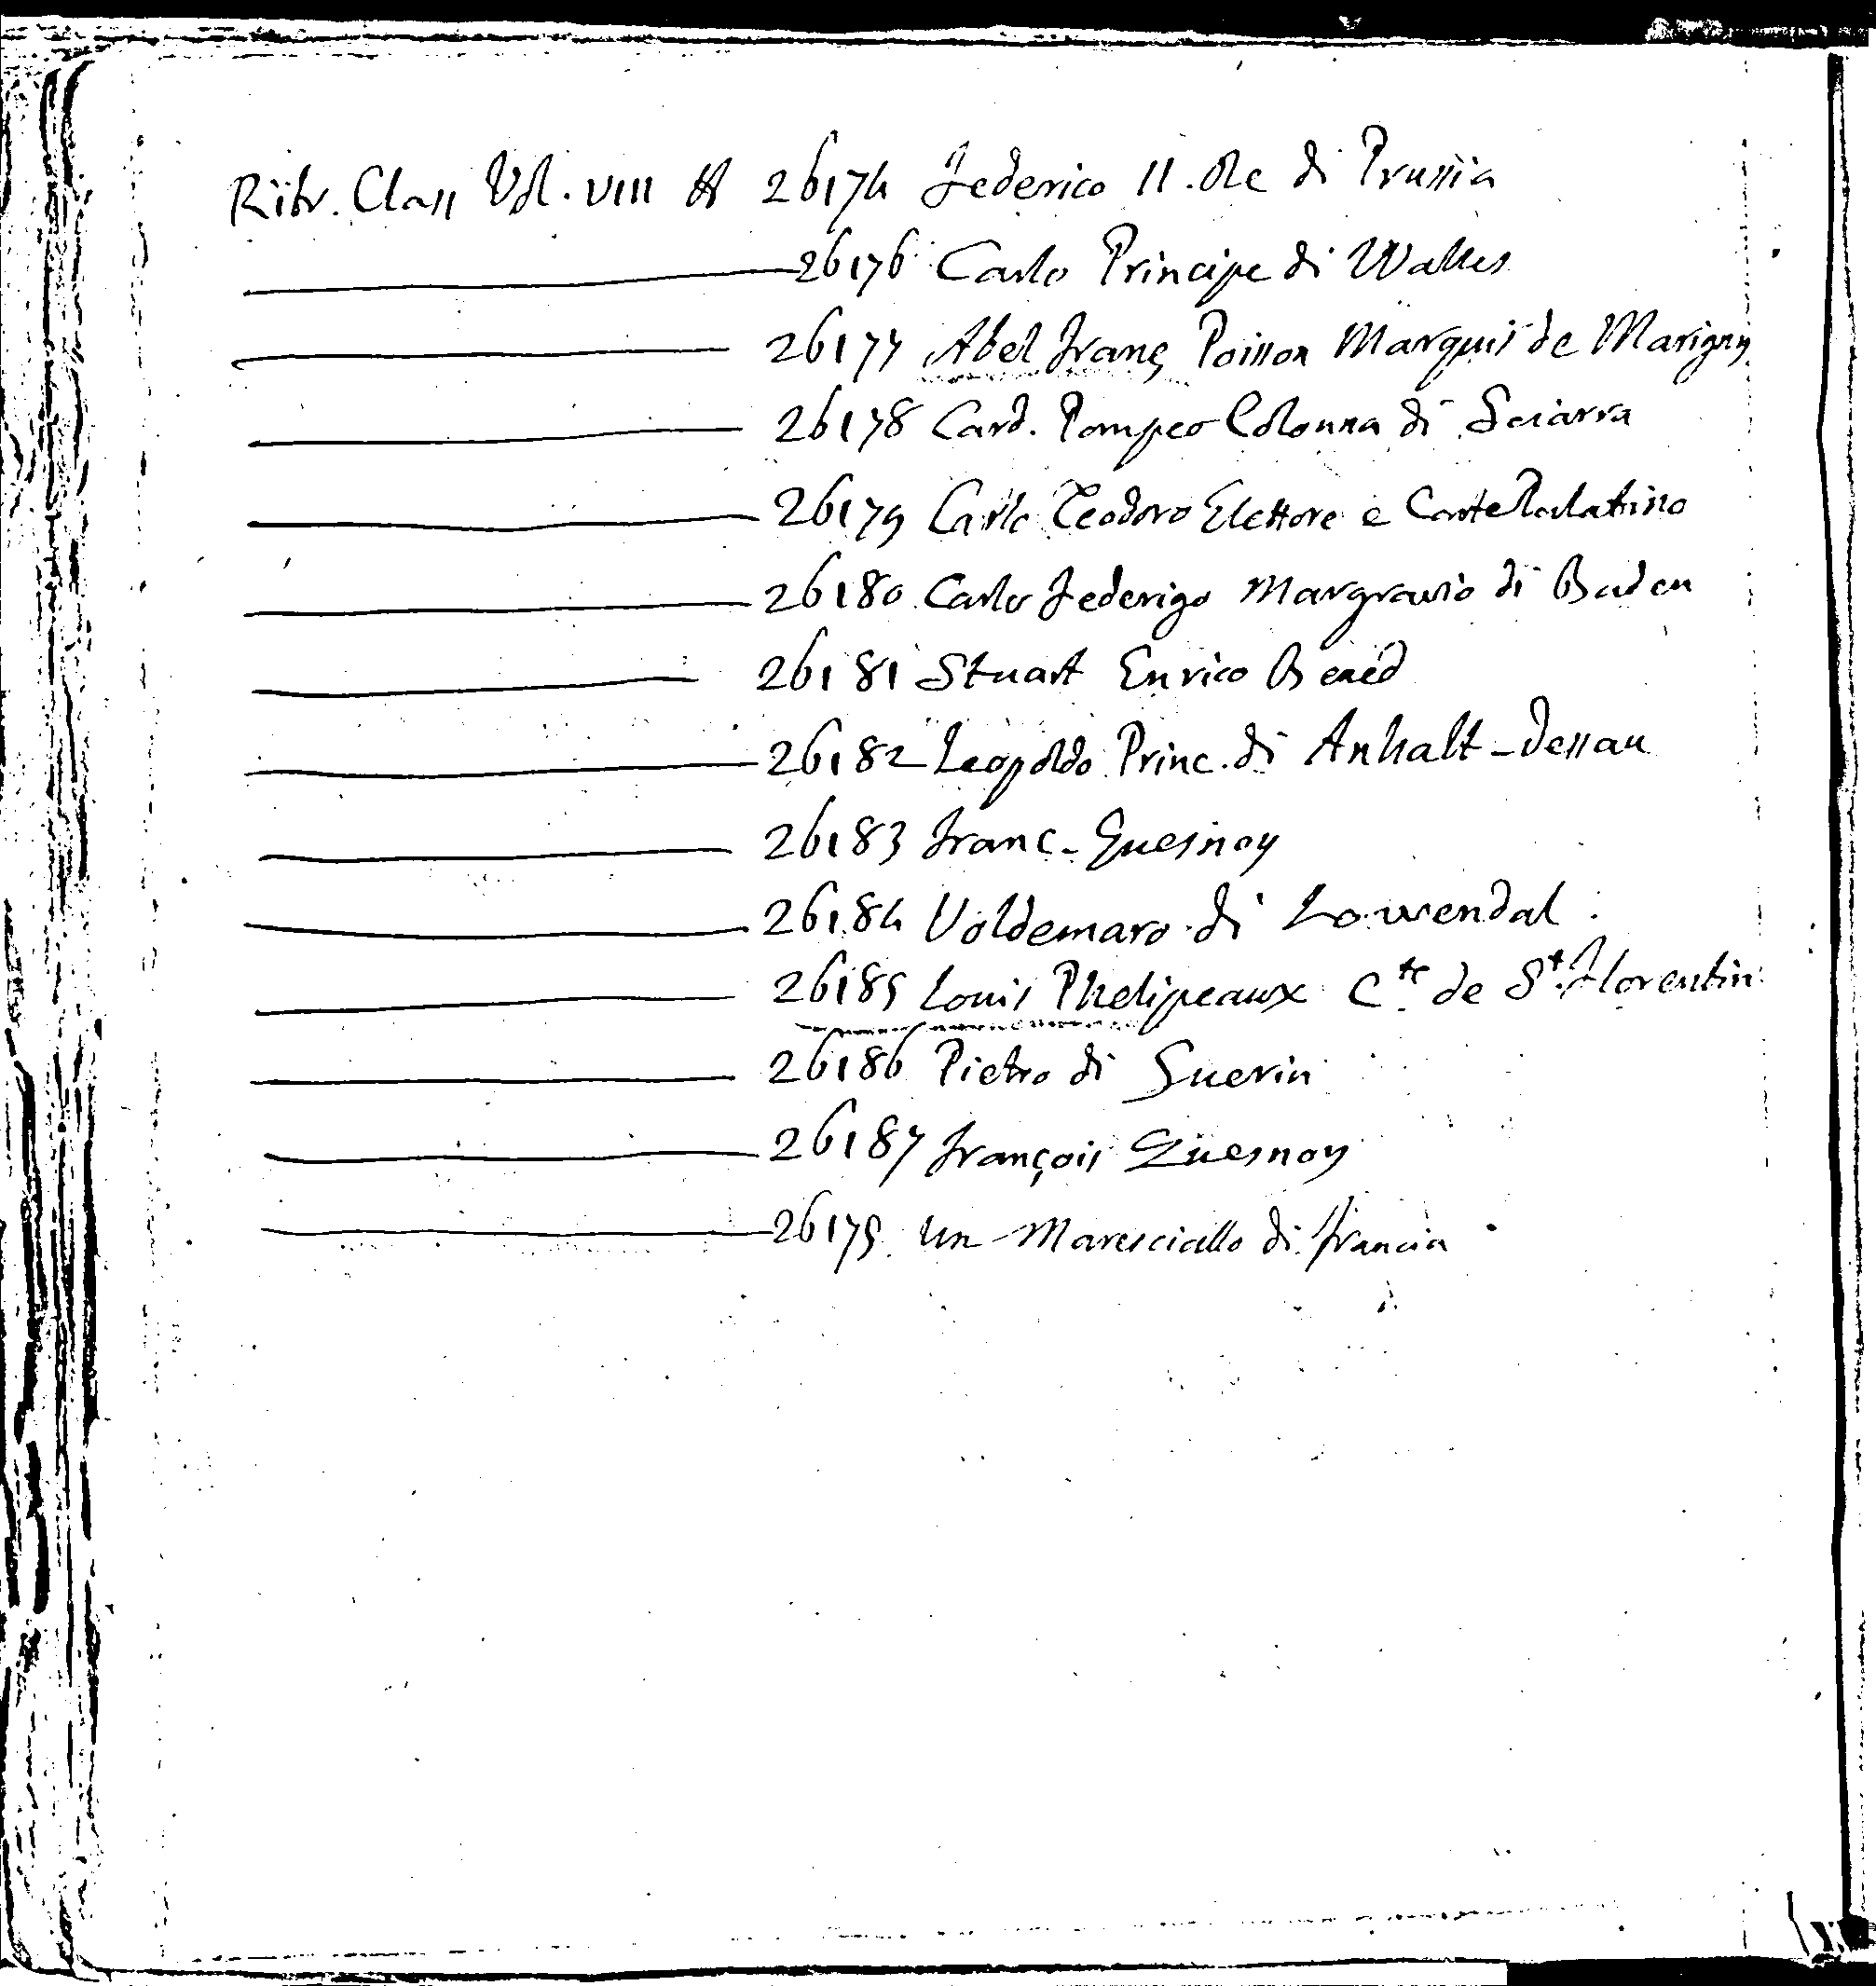 Ritr. Class Vol. VIII A 26174 Federico II. Re di Prussia
26176 Carlo Principe di Walles
26177 Abel Franç Poisson Marquis de Marigny
26178 Card. Pompeo Colonna di Sciarra
26179 Carlo Teodoro Elettore e Conte Palatino
26180 Carlo Federigo Margravio di Baden
26181 Stuart Enrico Bened
26182 Leopoldo Princ. di Anhalt-Dessau
26183 Franc. Quesnoy
26184 Voldemaro di Lowendal
26185 Louis Phelipeaux Cte de St. Florentin
26186 Pietro di Guerin
26187 François Quesnoy
26175 Un Maresciallo di Francia